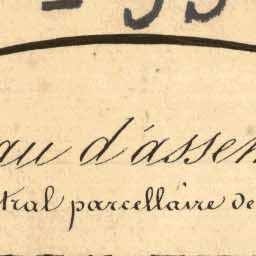 au d'assem
tral parcellaire de